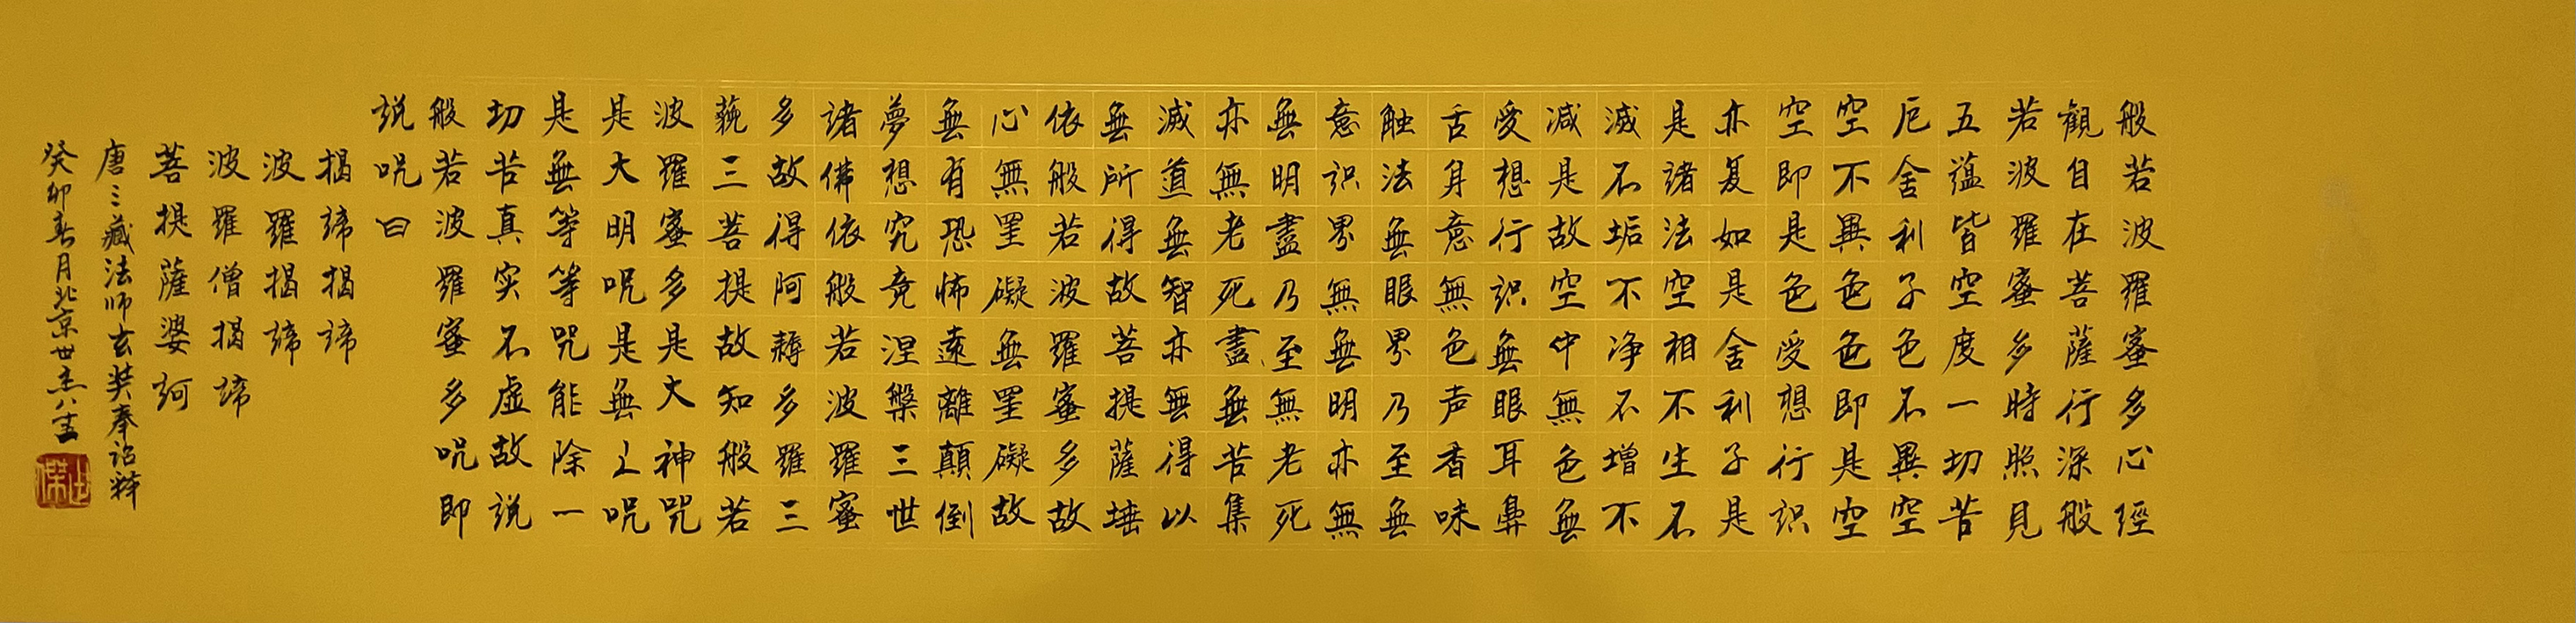 般若波羅蜜多心經
觀自在菩薩行深般
若波羅蜜多時照見
五蘊皆空度一切苦
厄舍利子色不異空
空不異色色即是空
空即是色受想行識
亦复如是舍利子是
是諸法空相不生不
滅不垢不净不增不
减是故空中無色無
受想行識無眼耳鼻
舌身意無色声香味
触法無眼界乃至無
意识界無無明亦無
無明盡乃至無老死
亦無老死盡無苦集
滅道無智亦無得以
無所得故菩提薩埵
依般若波羅蜜多故
心無罣礙無罣礙故
無有恐怖遠離顛倒
夢想究竟涅槃三世
諸佛依般若波羅蜜
多故得阿耨多羅三
藐三菩提故知般若
波羅蜜多是大神咒
是大明咒是無上咒
是無等等咒能除一
切苦真实不虚故説
般若波羅蜜多咒即
説咒曰
揭諦揭諦
波羅揭諦
波羅僧揭諦
菩提薩婆訶
唐三藏法师玄奘奉诏释
癸卯春月北京世杰八十書